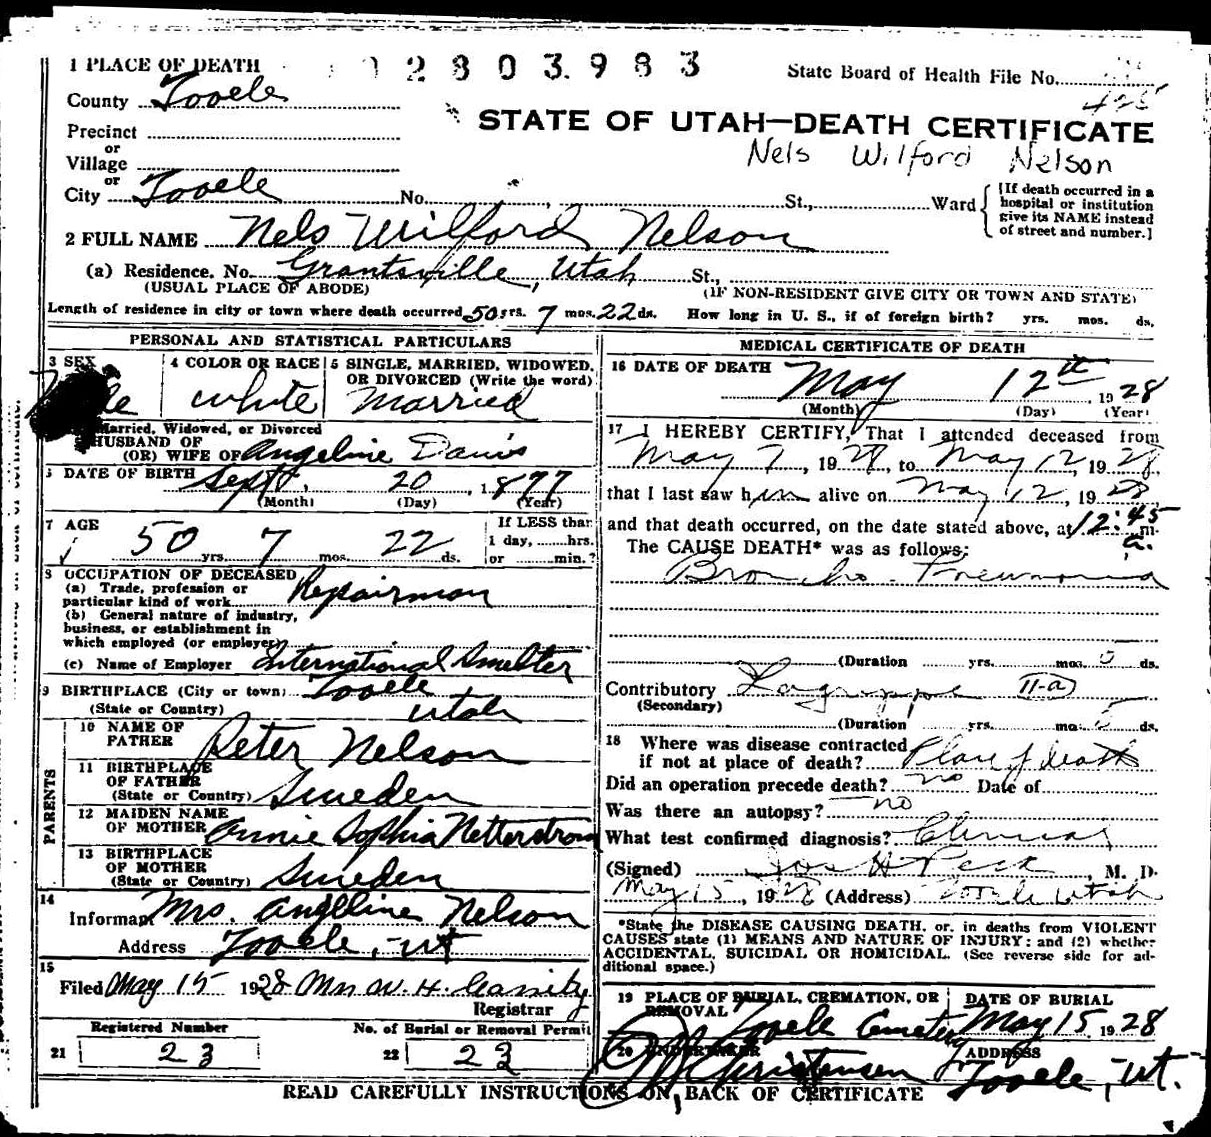 1 PLACE OF DEATH
2803983
State Board of Health File No.
425
County Tooele
STATE OF UTAH—DEATH CERTIFICATE
Nels Wilford Nelson
Precinct
or
Village
or
City Tooele No. , St., Ward
[If death occurred in a
hospital or institution
give its NAME instead
of street and number.]
2 FULL NAME Nels Wilford Nelson
(a) Residence. No. Grantsville, Utah St.,
(USUAL PLACE OF ABODE) (IF NON-RESIDENT GIVE CITY OR TOWN AND STATE)
Length of residence in city or town where death occurred 50 yrs. 7 mos. 22 ds. How long in U. S., if of foreign birth? yrs. mos. ds.
PERSONAL AND STATISTICAL PARTICULARS
3 SEX
4 COLOR OR RACE
white
5 SINGLE, MARRIED, WIDOWED,
OR DIVORCED (Write the word)
Married
Married, Widowed, or Divorced
HUSBAND OF
(OR) WIFE OF Angeline Davis
DATE OF BIRTH Sept, 20, 1877
(Month) (Day) (Year)
7 AGE
50 yrs. 7 mos. 22 ds.
If LESS than
1 day, hrs.
or min.?
8 OCCUPATION OF DECEASED
(a) Trade, profession or
particular kind of work Repairman
(b) General nature of industry,
business, or establishment in
which employed (or employer)
(c) Name of Employer International Smelter
9 BIRTHPLACE (City or town) Tooele
(State or Country) Utah
PARENTS
10 NAME OF
FATHER Peter Nelson
11 BIRTHPLACE
OF FATHER
(State or Country) Sweden
12 MAIDEN NAME
OF MOTHER Annie Sophia Netterstrom
13 BIRTHPLACE
OF MOTHER
(State or Country) Sweden
14
Informant Mrs. Angelline Nelson
Address Tooele, Ut
15
Filed May 15 1928 Mrs W. H. Cassity
Registrar
Registered Number
21 23
No. of Burial or Removal Permit
22 23
MEDICAL CERTIFICATE OF DEATH
16 DATE OF DEATH May 12th 1928
(Month) (Day) (Year)
17 I HEREBY CERTIFY, That I attended deceased from
May 7, 1928, to May 12, 1928.
that I last saw him alive on May 12, 1928
and that death occurred, on the date stated above, at 12:45 a. m.
The CAUSE DEATH* was as follows:
Broncho-Pneumonia
(Duration yrs. mos. 5 ds.
Contributory Lagrippe 11-a
(Secondary)
(Duration yrs. mos. 5 ds.
18 Where was disease contracted
if not at place of death? Place of death
Did an operation precede death? no Date of
Was there an autopsy? no
What test confirmed diagnosis? Clinical
(Signed) Jos H Peck, M. D.
May 15, 1928 (Address) Tooele Utah
*State the DISEASE CAUSING DEATH, or, in deaths from VIOLENT
CAUSES state (1) MEANS AND NATURE OF INJURY; and (2) whether
ACCIDENTAL, SUICIDAL OR HOMICIDAL. (See reverse side for ad-
ditional space.)
19 PLACE OF BURIAL, CREMATION, OR
REMOVAL Tooele Cemetery
DATE OF BURIAL
May 15 1928
20 UNDERTAKER
Christensen
ADDRESS
Tooele, Ut.
READ CAREFULLY INSTRUCTIONS ON BACK OF CERTIFICATE